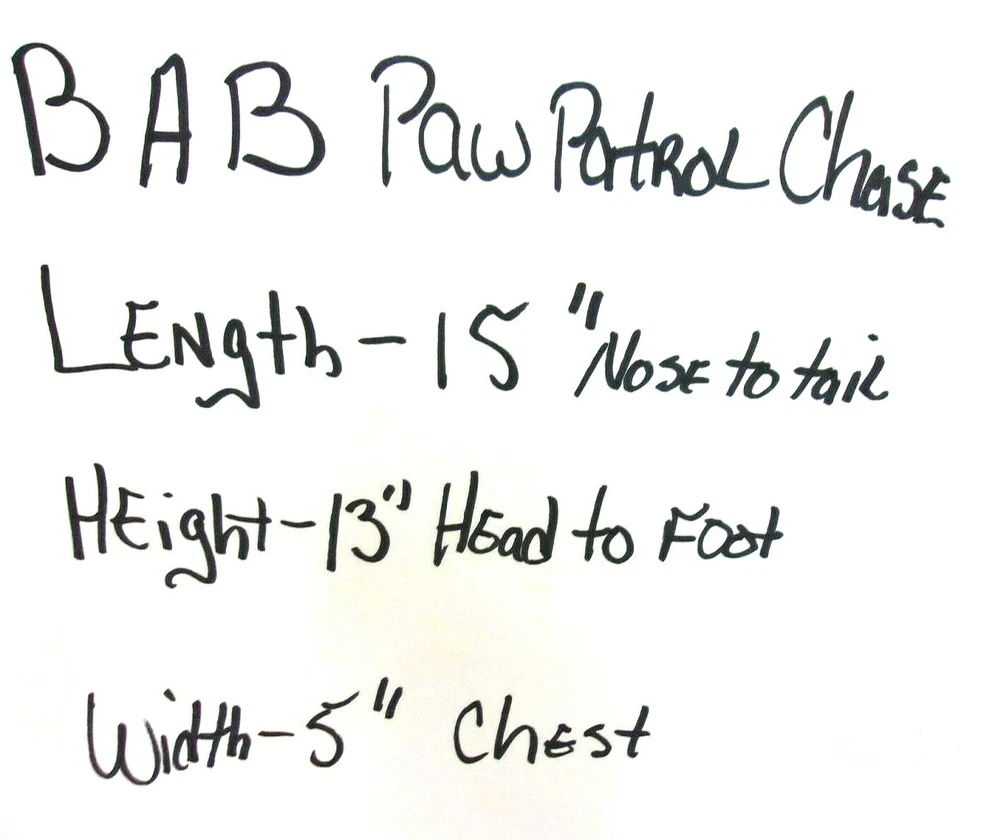 BAB Paw Patrol Chase
Length - 15" Nose to tail
Height - 13" Head to Foot
Width - 5" Chest